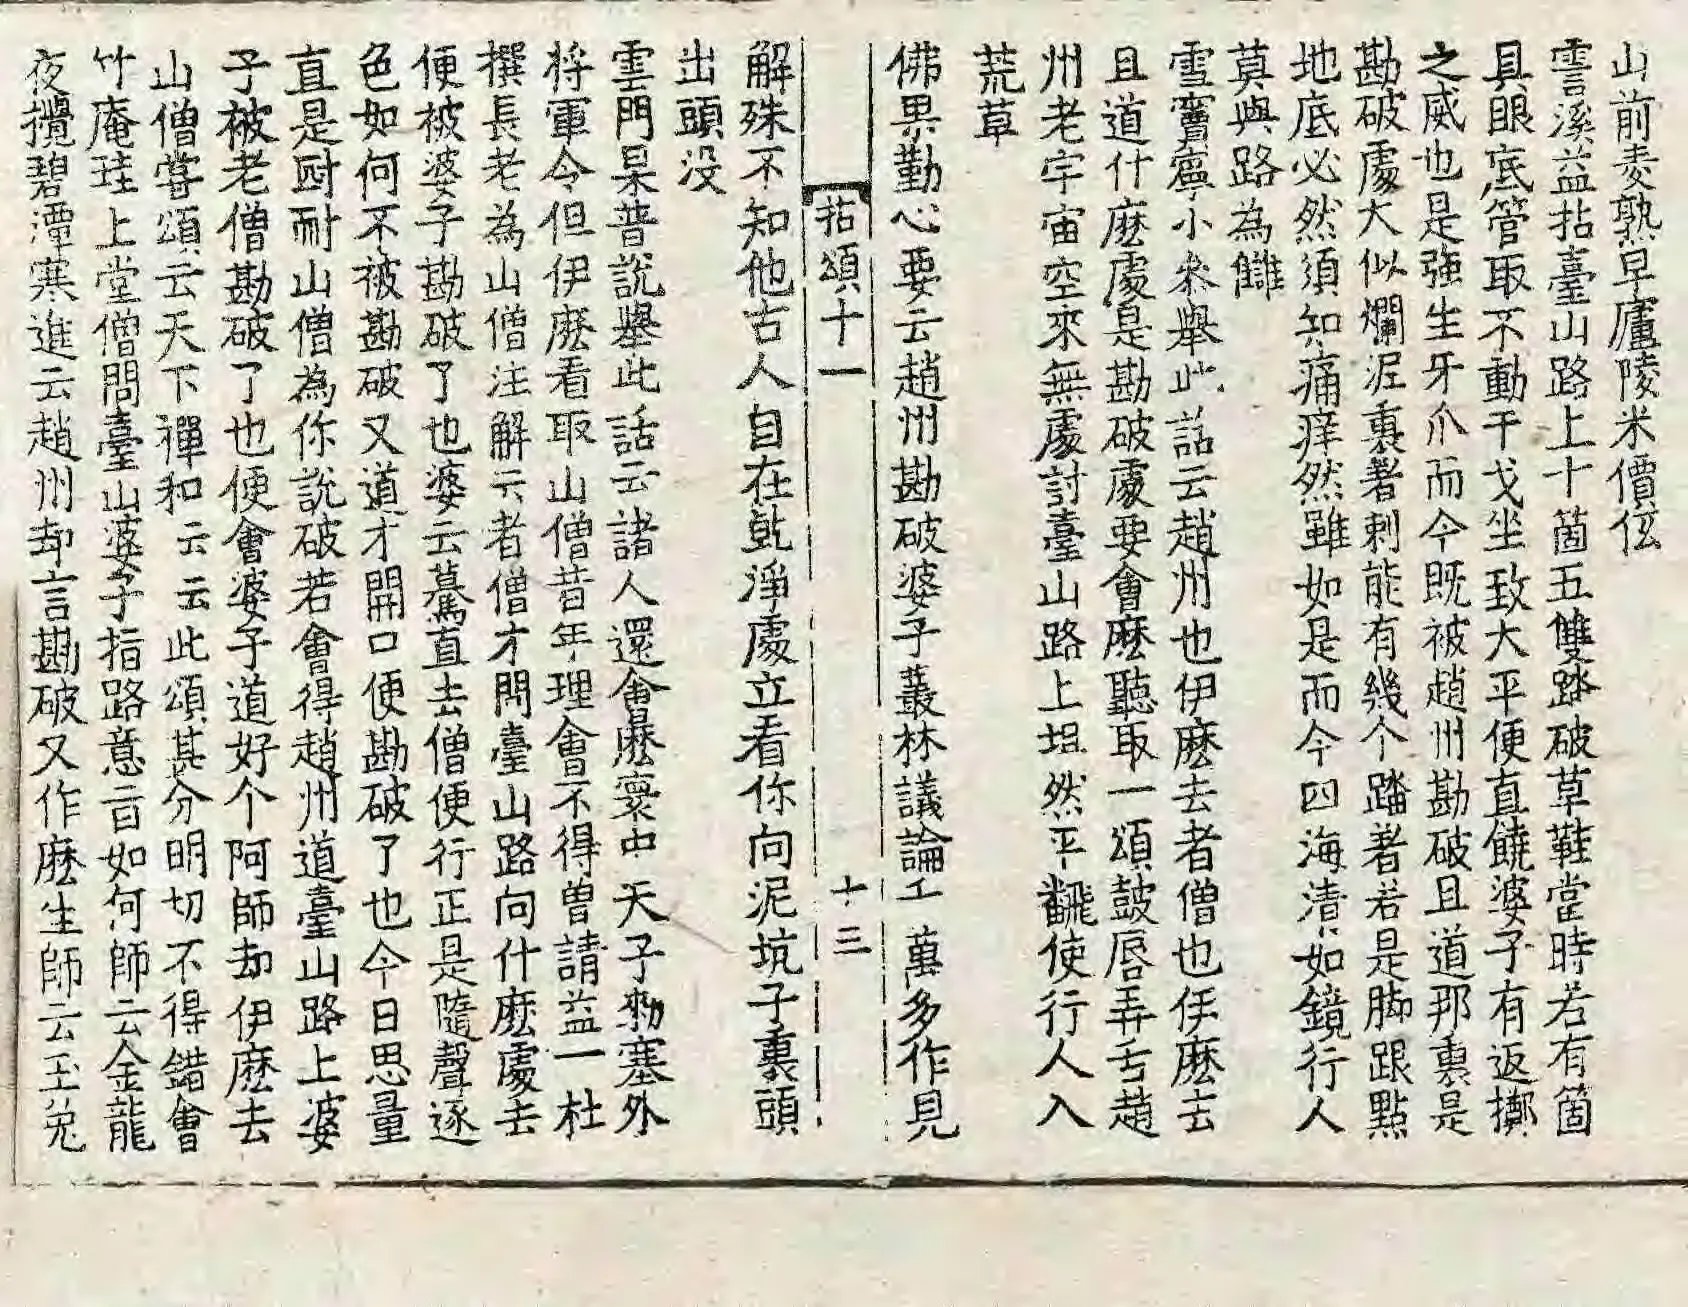 山前麦熟早廬陵米價低
霅溪益拈臺山路上十箇五雙踏破草鞋當時若有箇
具眼底管取不動干戈坐致大平便直饒婆子有返擲
之威也是强生牙爪而今既被趙州勘破且道那裏是
勘破處大似爛泥裏著刺能有幾个踏著若是脚跟點
地底必然須知痛痒然雖如是而今四海清如鏡行人
莫與路為讎
雪竇寧小叅舉此話云趙州也伊麽去者僧也伊麽去
且道什麽處是勘破處要會麽聽取一頌鼓唇弄舌趙
州老宇宙空來無處討臺山路上坦然平飜使行人入
荒草
佛果勤心要云趙州勘破婆子叢林議論千萬多作見
拈頌十一 十三
解殊不知他古人自在乾淨處立看你向泥坑子裏頭
出頭没
雲門杲普說舉此話云諸人還會麽寰中天子勑塞外
将軍令但伊麽看取山僧昔年理會不得曽請益一杜
撰長老為山僧注解云者僧才問臺山路向什麽處去
便被婆子勘破了也婆云驀直去僧便行正是隨聲逐
色如何不被勘破又道才開口便勘破了也今日思量
直是尀耐山僧為你說破若會得趙州道臺山路上婆
子被老僧勘破了也便會婆子道好个阿師却伊麽去
山僧嘗頌云天下禪和云云此頌其分明切不得錯會
竹庵珪上堂僧問臺山婆子指路意旨如何師云金龍
夜攪碧潭寒進云趙州却言勘破又作麽生師云玉兎